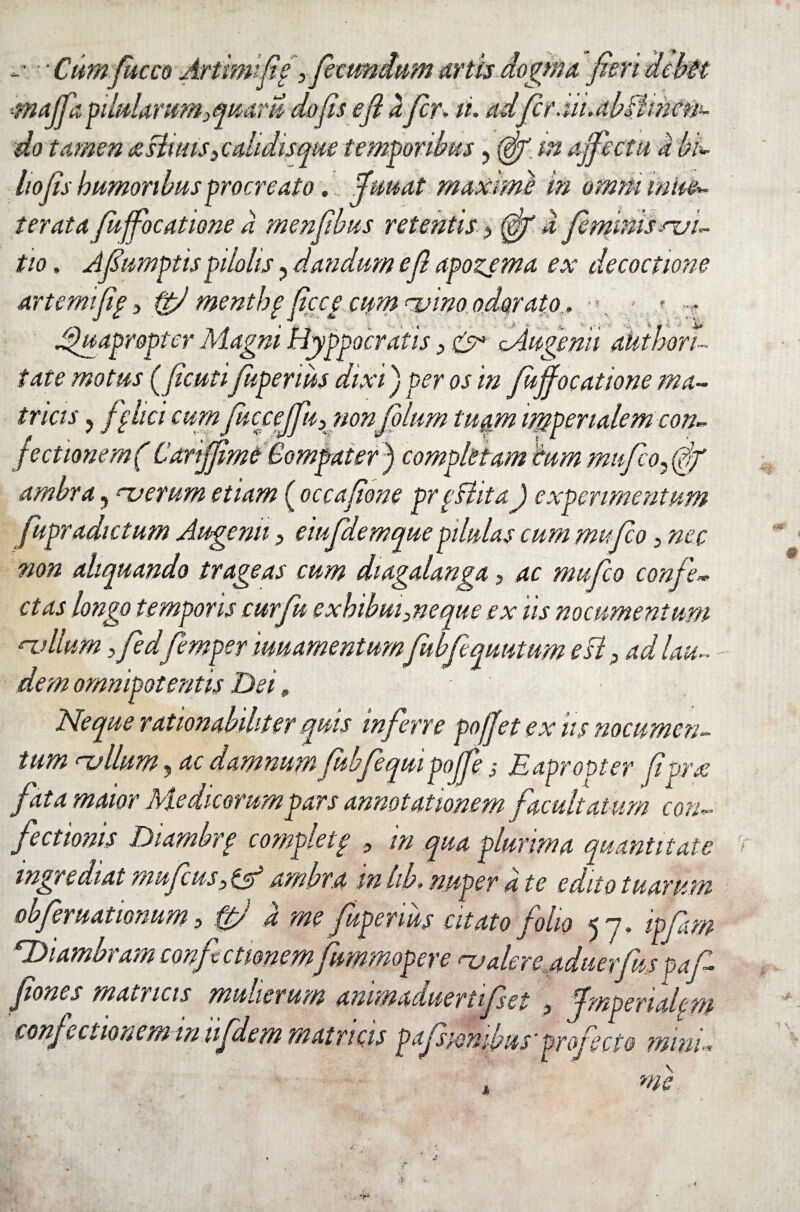 Cum ſucco Artimiſię, ſecundum artis dogma fieri debet
maſſa pilularum, quarū doſis eſt à ſcr. ii. ad ſcr. iii. abſtinen-
do tamen æſtiuis, calidisque temporibus, & in affectu à bi-
lioſis humoribus procreato. Juuat maximè in omni inue-
terata ſuffocatione à menſibus retentis, & à ſeminis vi-
tio. Aſſumptis pilolis, dandum eſt apozema ex decoctione
artemiſię, & menthę ſiccę cum vino odorato.
Quapropter Magni Hyppocratis, & Augenii authori-
tate motus (ſicuti ſuperiùs dixi) per os in ſuffocatione ma-
tricis, fęlici cum ſucceſſu, non ſolum tuam imperialem con-
fectionem (Cariſſime Compater) completam cum muſco, &
ambra, verum etiam (occaſione pręſtita) experimentum
ſupradictum Augenii, eiuſdemque pilulas cum muſco, nec
non aliquando trageas cum diagalanga, ac muſco confe-
ctas longo temporis curſu exhibui, neque ex iis nocumentum
vllum, ſed ſemper iuuamentum ſubſequutum eſt, ad lau-
dem omnipotentis Dei.
Neque rationabiliter quis inferre poſſet ex iis nocumen-
tum vllum, ac damnum ſubſequi poſſe; Eapropter ſi præ
fata maior Medicorum pars annotationem facultatum con-
fectionis Diambrę completę, in qua plurima quantitate
ingrediat muſcus, & ambra in lib. nuper à te edito tuarum
obſeruationum, & à me ſuperiùs citato folio 57. ipſam
Diambram confectionem ſummopere valere aduerſus paſ-
ſiones matricis mulierum animaduertiſſet, Imperialem
confectionem in iiſdem matricis paſsionibus profecto mini-
mè